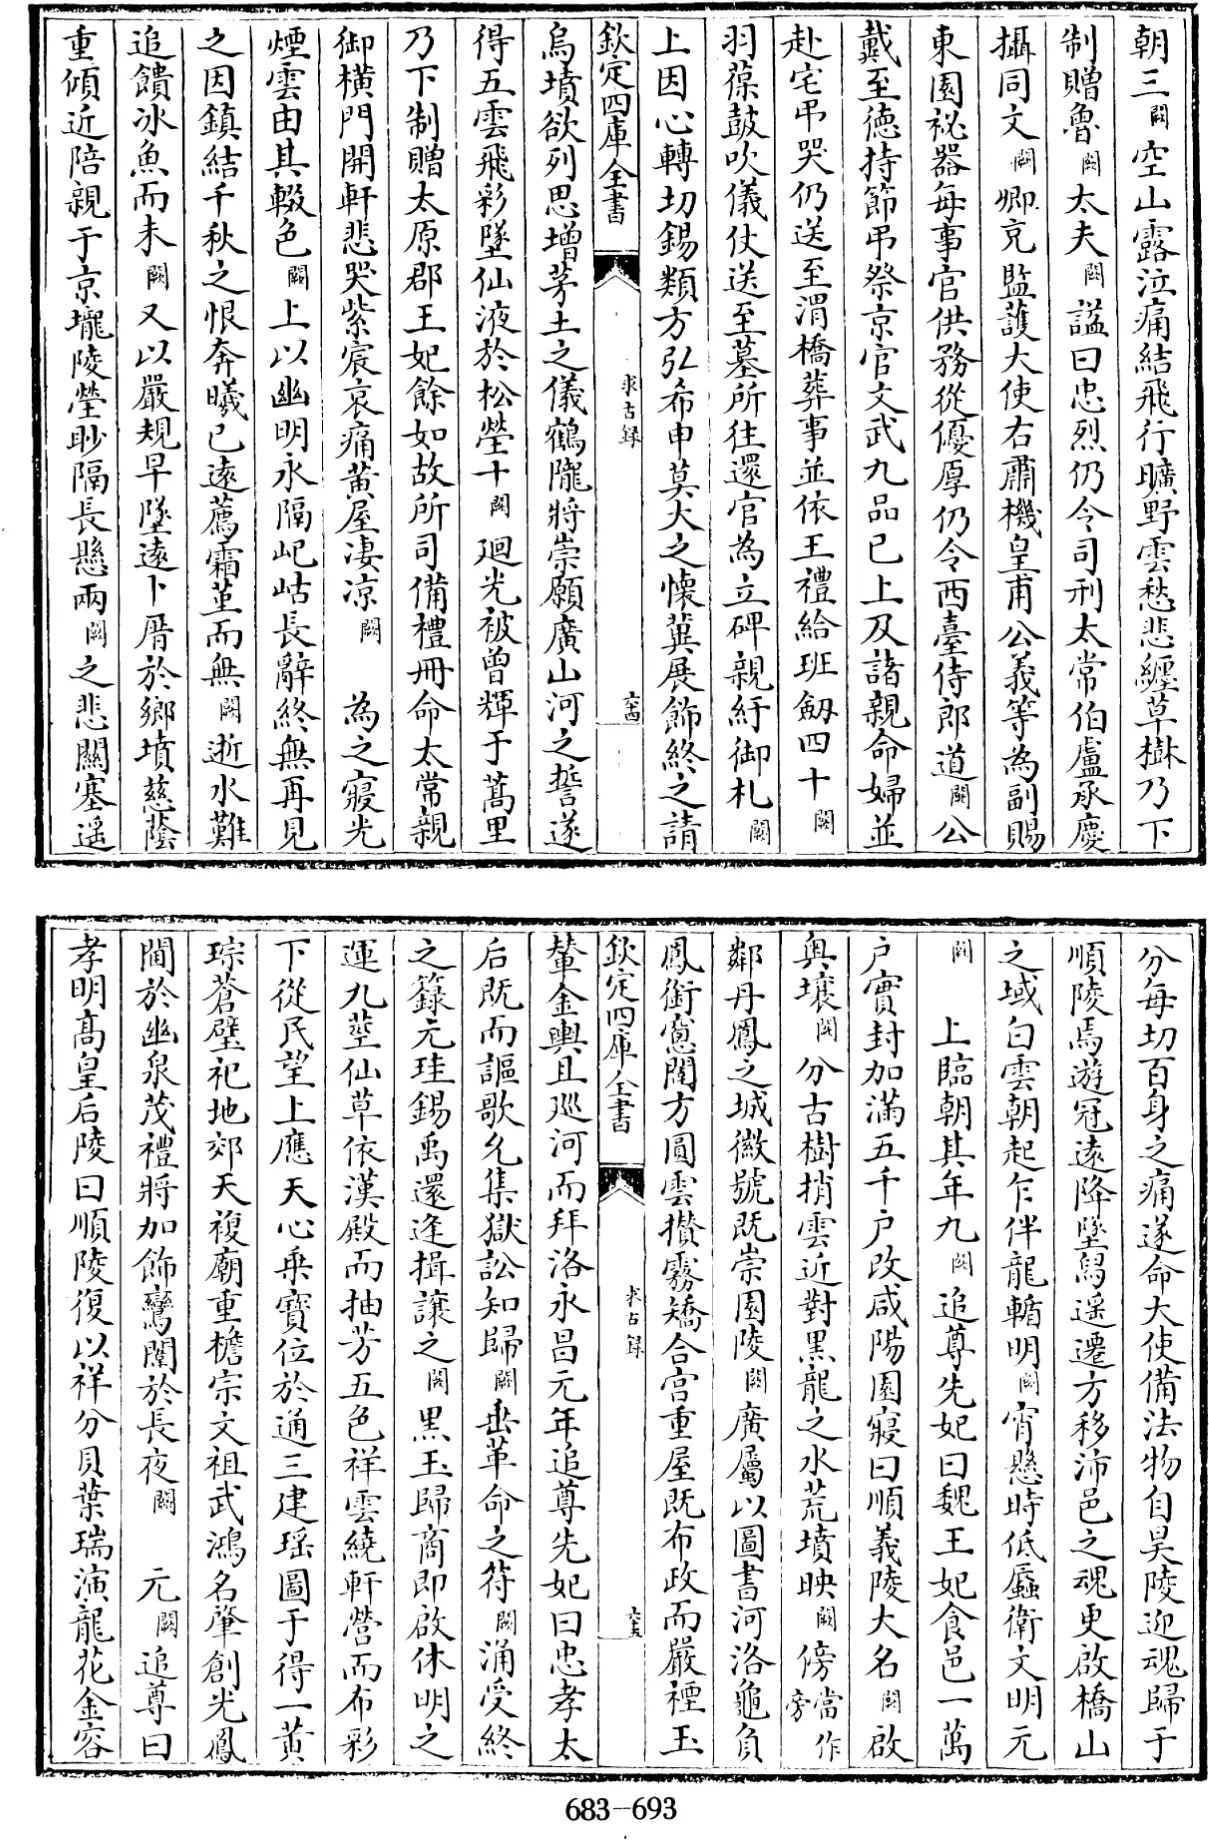 朝三闕空山露泣痛結飛行曠野雲愁悲纏草樹乃下
制贈魯闕太夫闕諡曰忠烈仍令司刑太常伯盧承慶
攝同文闕卿克監護大使右肅機皇甫公義等為副賜
東園祕器每事官供務從優厚仍令西臺侍郎道闕公
戴至德持節弔祭京官文武九品已上及諸親命婦並
赴宅弔哭仍送至渭橋葬事並依王禮給班劔四十闕
羽葆鼓吹儀仗送至墓所往還官為立碑親紆御札闕
上因心轉切錫類方弘希申莫大之懷冀展飾終之請
欽定四庫全書
求古録
六十四
烏墳欲列思增茅土之儀鶴隴將崇願廣山河之誓遂
得五雲飛彩墜仙液於松塋十闕廻光被曾輝于蒿里
乃下制贈太原郡王妃餘如故所司備禮冊命太常親
御橫門開軒悲哭紫宸哀痛黃屋淒涼闕為之寢光
煙雲由其輟色闕上以幽明永隔屺岵長辭終無再見
之因鎮結千秋之恨奔曦已遠薦霜堇而無闕逝水難
追饋冰魚而未闕又以嚴規早墜遠卜厝於鄉墳慈蔭
重傾近陪親于京壠陵塋眇隔長懸兩闕之悲關塞遥
分每切百身之痛遂命大使備法物自昊陵迎魂歸于
順陵馬遊冠遠降墜舄遥遷方移沛邑之魂更啟橋山
之域白雲朝起乍伴龍輴明闕宵懸時低蜃衛文明元
闕上臨朝其年九闕追尊先妃曰魏王妃食邑一萬
户實封加滿五千户改咸陽園寢曰順義陵大名闕啟
奥壤闕分古樹捎雲近對黑龍之水荒墳映闕傍當作旁
鄰丹鳳之城徽號既崇園陵闕廣屬以圖書河洛龜負
鳳銜窻闥方圓雲攢霧矯合宫重屋既布政而嚴禋玉
欽定四庫全書
求古録
六十五
輦金輿且巡河而拜洛永昌元年追尊先妃曰忠孝太
后既而謳歌允集獄訟知歸闕垂革命之符闕涌受終
之籙元珪錫禹還逢揖讓之闕黑玉歸商即啟休明之
運九莖仙草依漢殿而抽芳五色祥雲繞軒營而布彩
下從民望上應天心乘寶位於通三建瑶圖于得一黄
琮蒼璧祀地郊天複廟重檐宗文祖武鴻名肇創光鳳
闈於幽泉茂禮將加飾鸞闈於長夜闕元闕追尊曰
孝明髙皇后陵曰順陵復以祥分貝葉瑞演龍花金容
683-693